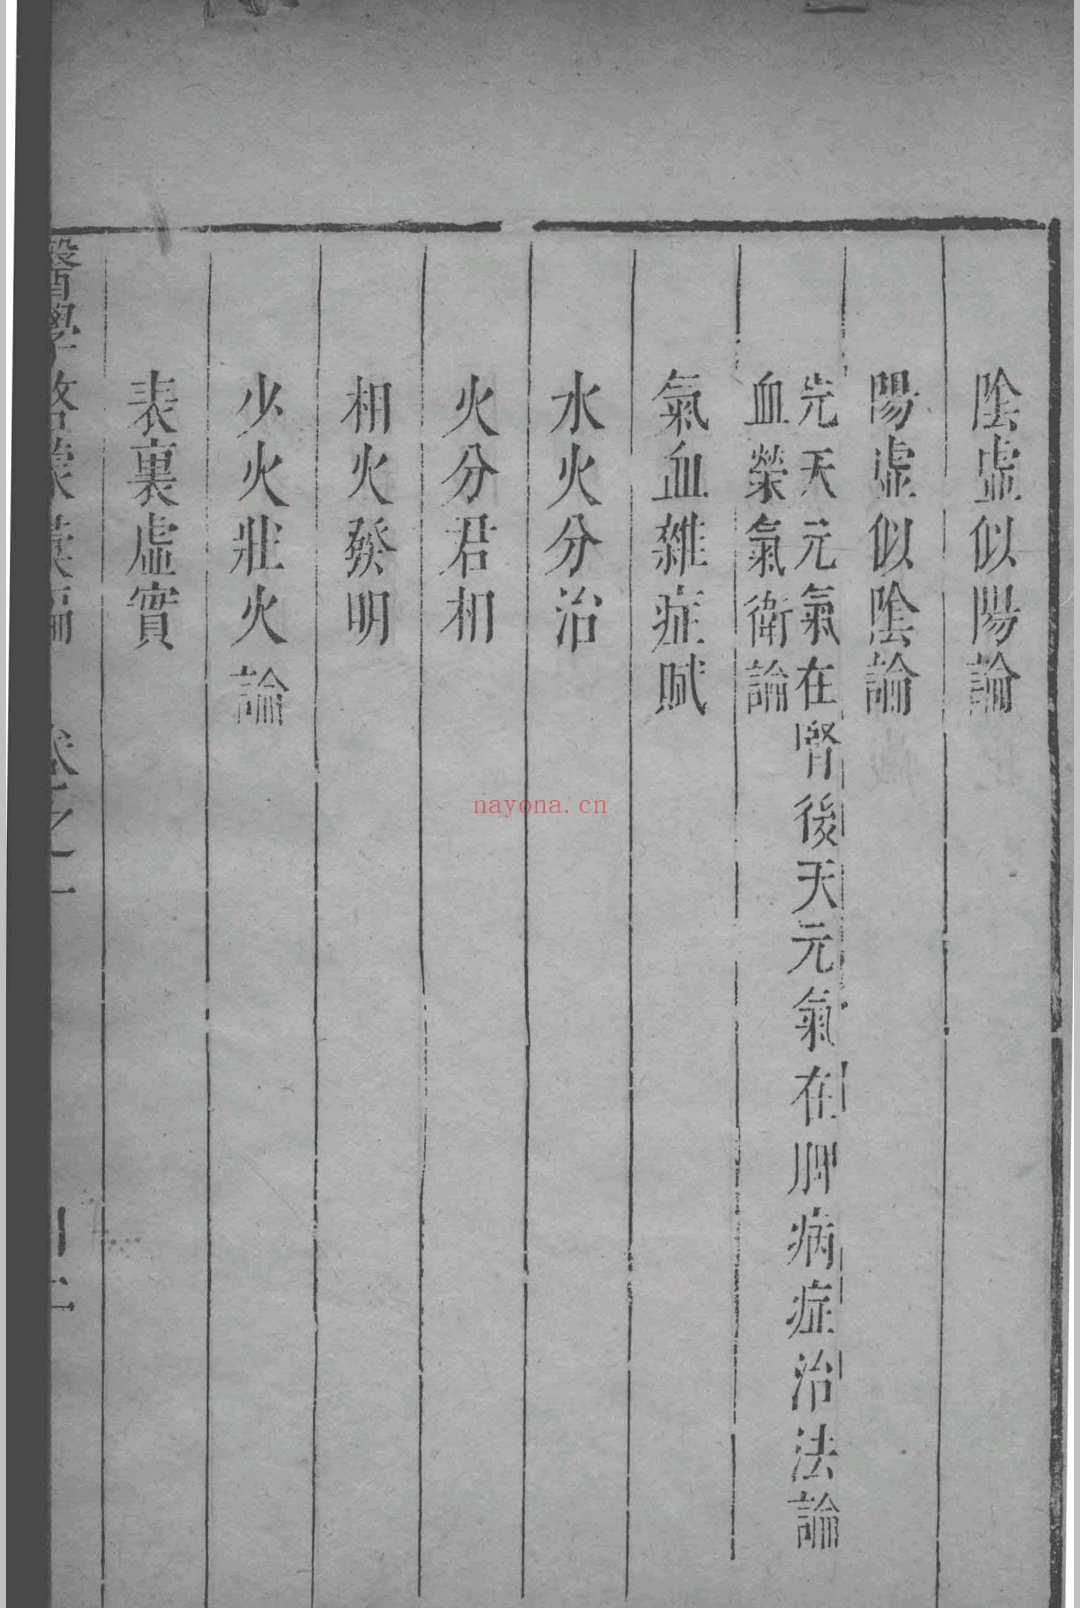 陰虛似陽論
陽虛似陰論
先天元氣在腎後天元氣在脾病症治法論
血榮氣衛論
氣血雜症賦
水火分治
火分君相
相火發明
少火壯火論
表裏虛實
醫學啓蒙彙編 卷之一
nayona.cn